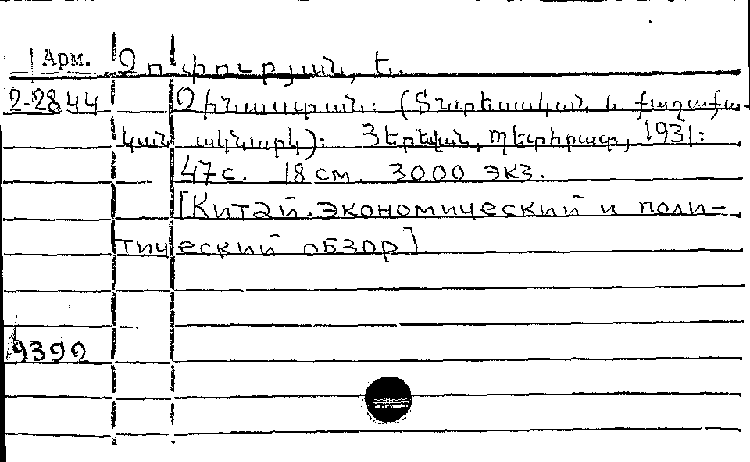 Арм. Չոփուրյան, Ե.
2-2844 Չինաստան: (Տնտեսական և քաղաքա-
կան ակնարկ): Յերեվան, Պետհրատ, 1931:
47 с. 18 см. 3000 экз.
[Китай. экономический и поли-
тический обзор]
9392